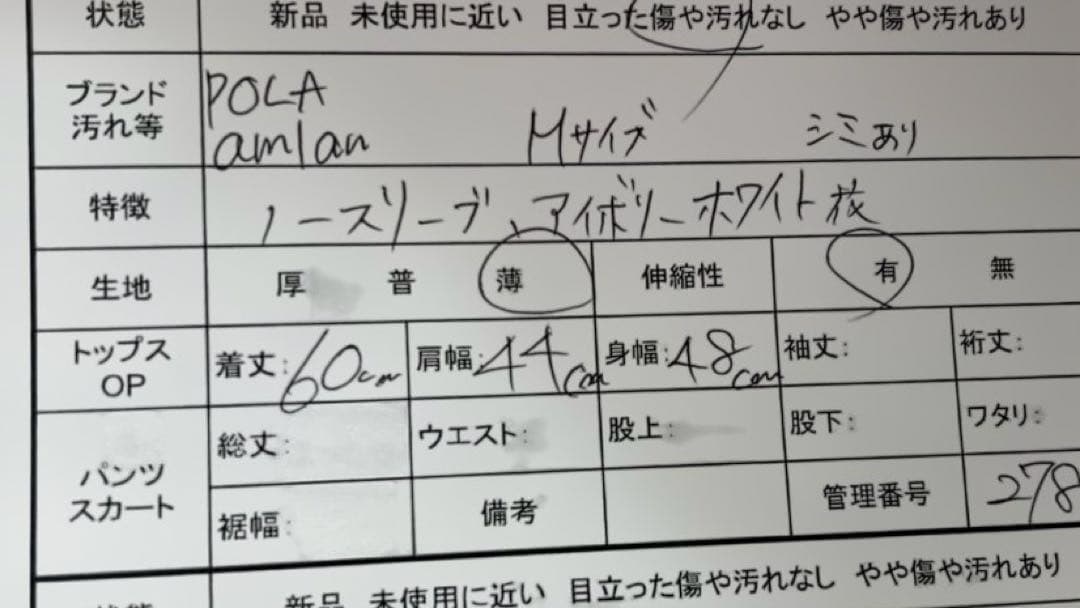 状態 新品 未使用に近い 目立った傷や汚れなし やや傷や汚れあり
ブランド
汚れ等
POLA
amlan Mサイズ シミあり
特徴 ノースリーブ、アイボリーホワイト
生地 厚 普 薄 伸縮性 有 無
トップス
OP
着丈: 60cm 肩幅: 44cm 身幅: 48cm 袖丈: 裄丈:
パンツ
スカート
総丈: ウエスト: 股上: 股下: ワタリ:
裾幅: 備考 管理番号 278
状態 新品 未使用に近い 目立った傷や汚れなし やや傷や汚れあり